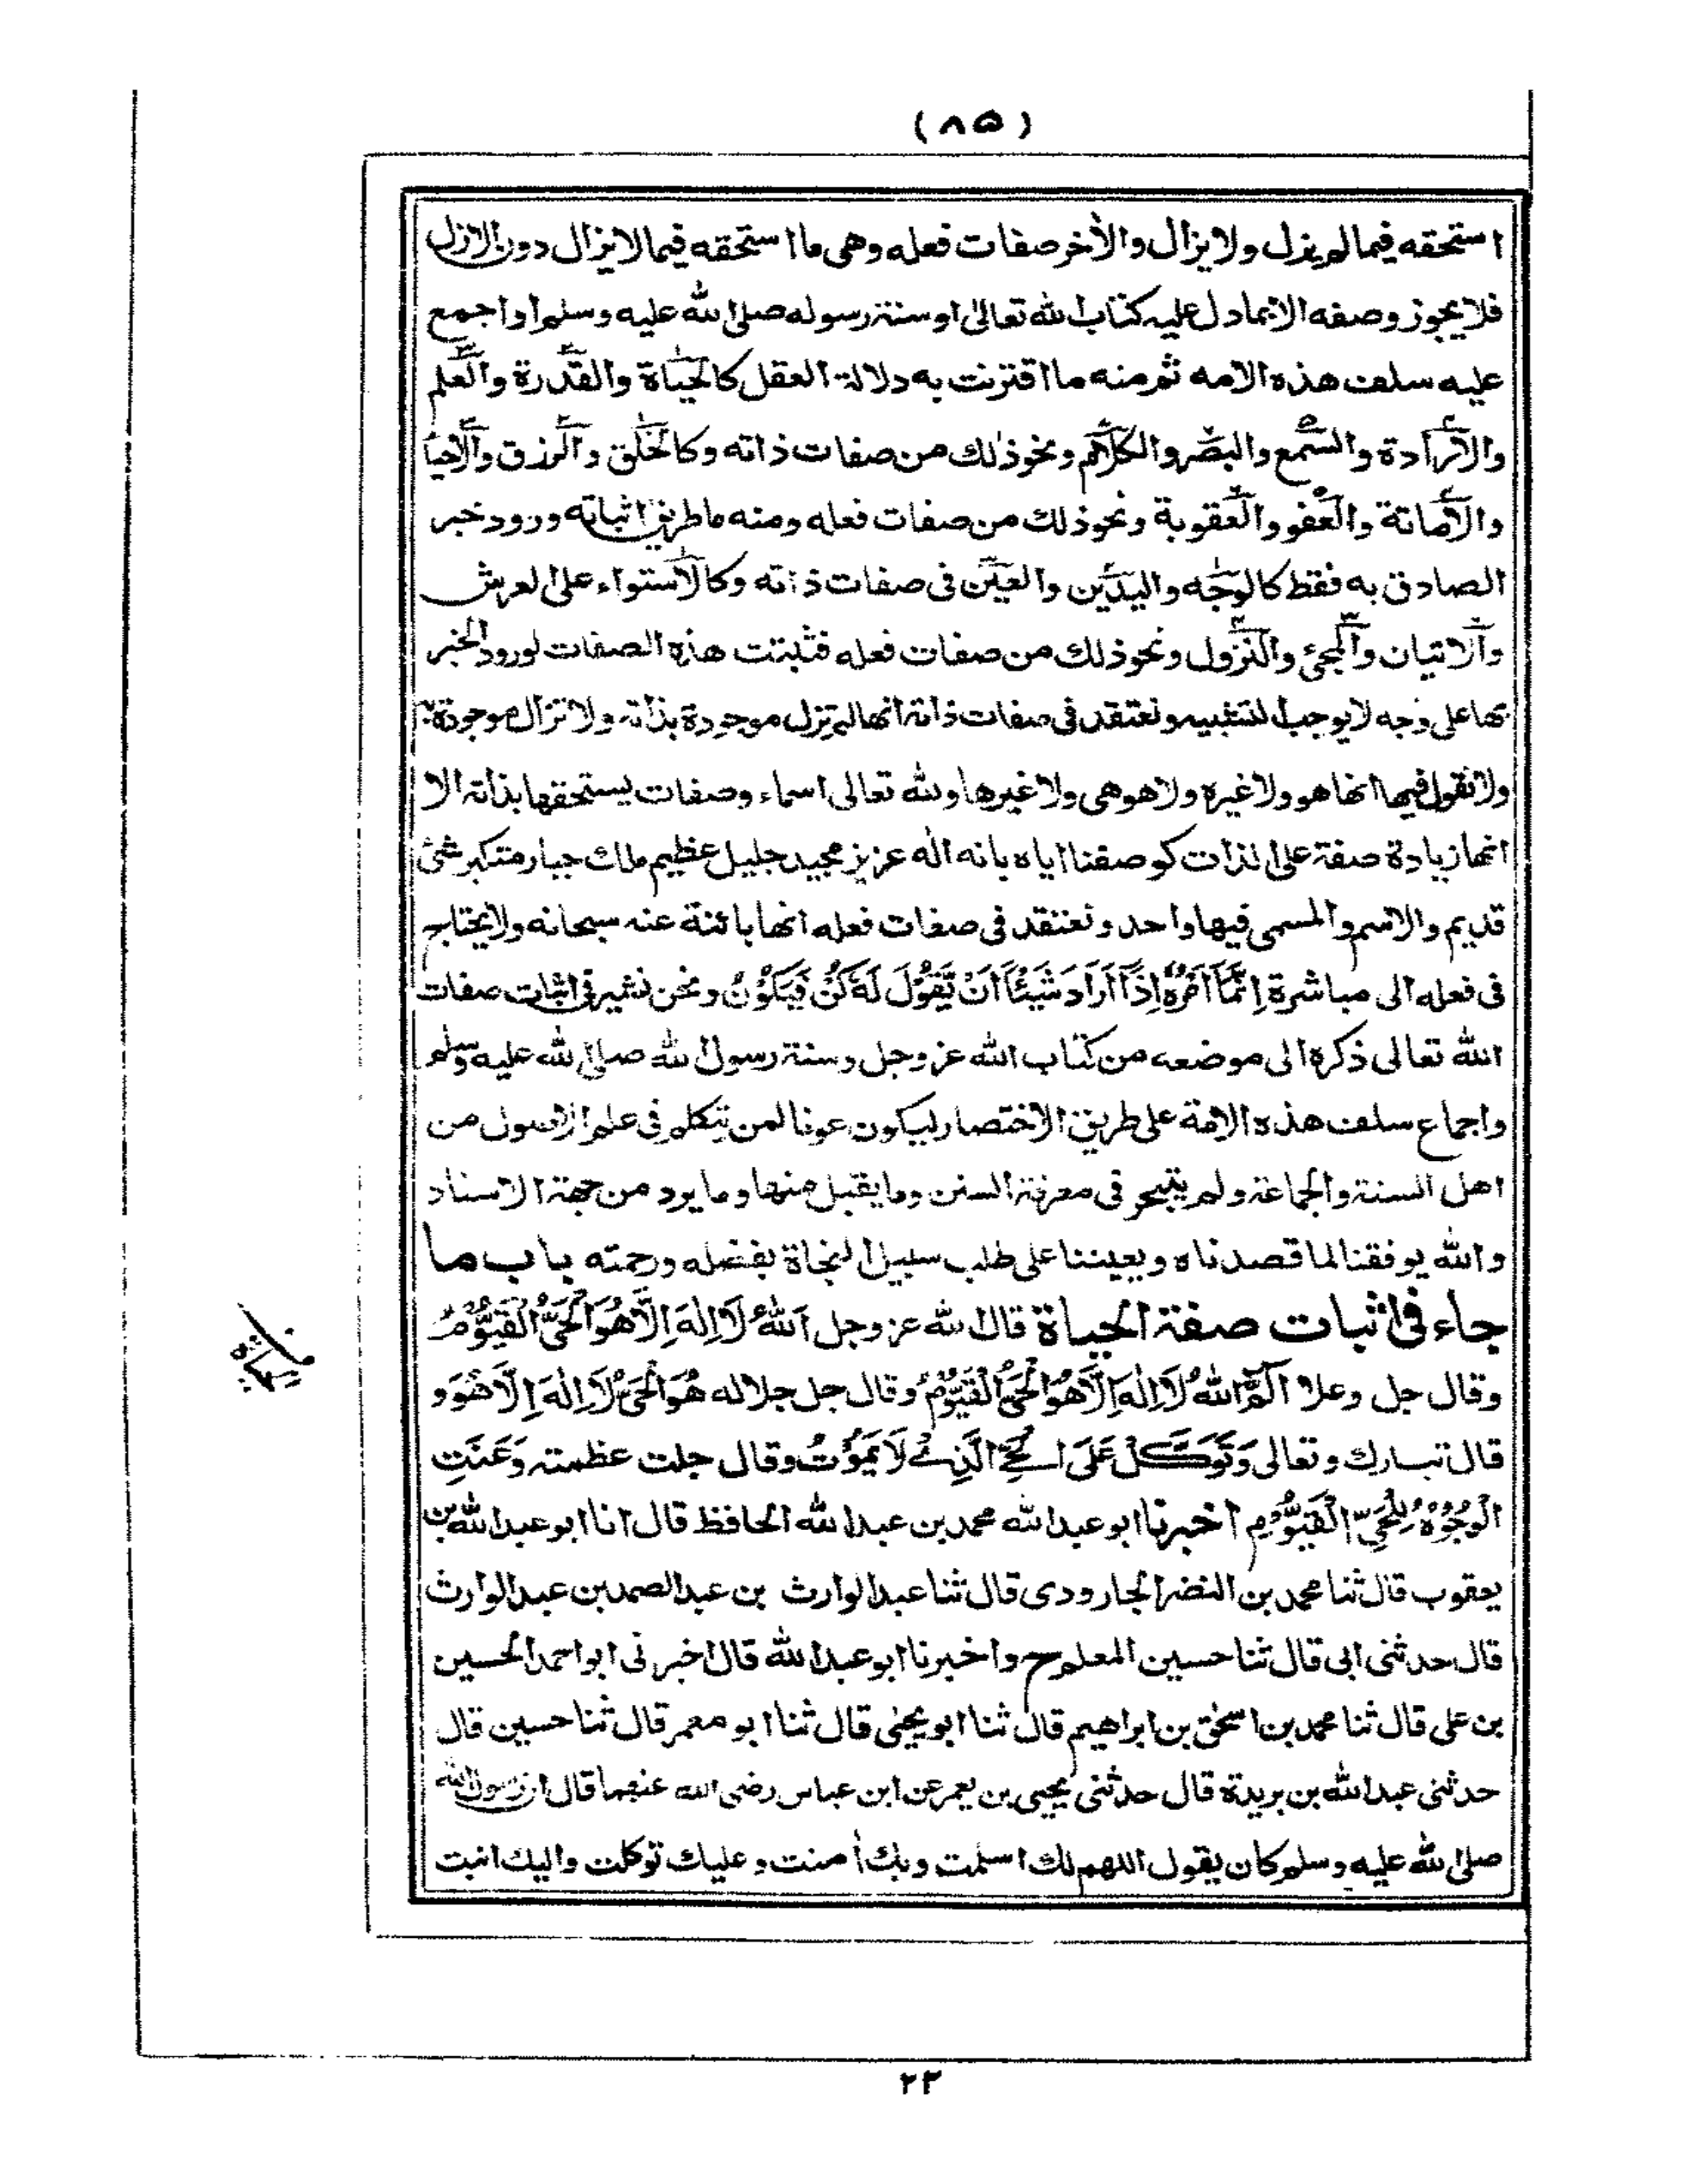 (٨٥)
استحقه فيما لم يزل ولا يزال والأخر صفات فعله وهى ما استحقه فيما لا يزال دون الازل
فلا يجوز وصفه الا بما دل عليه كتاب الله تعالى او سنة رسوله صلى الله عليه وسلم او اجمع
عليه سلف هذه الامه ثم منه ما اقترنت به دلالة العقل كالحياة والقدرة والعلم
والارادة والسمع والبصر والكلام ونحو ذلك من صفات ذاته وكالخلق والرزق والاحيا
والاماتة والعفو والعقوبة ونحو ذلك من صفات فعله ومنه ما طريق اثباته ورود خبر
الصادق به فقط كالوجه واليدين والعين فى صفات ذاته وكالاستواء على العرش
والاتيان والمجئ والنزول ونحو ذلك من صفات فعله فثبتت هذه الصفات لورود الخبر
بها على وجه لا يوجب التشبيه ونعتقد فى صفات ذاته انها لم تزل موجودة بذاته ولا تزال موجودة به
ولا نقول فيها انها هو ولا غيره ولا هو هى ولا غيرها ولله تعالى اسماء وصفات يستحقها بذاته الا
انها زيادة صفة على الذات كوصفنا اياه بانه اله عزيز مجيد جليل عظيم ملك جبار متكبر شئ
قديم والاسم والمسمى فيها واحد ونعتقد فى صفات فعله انها بائنة عنه سبحانه ولا يحتاج
فى فعله الى مباشرة اِنَّمَآ اَمْرُهٗٓ اِذَآ اَرَادَ شَيْـًٔا اَنْ يَّقُوْلَ لَهٗ كُنْ فَيَكُوْنُ ونحن نشير فى اثبات صفات
الله تعالى ذكره الى موضعه من كتاب الله عز وجل وسنة رسول الله صلى الله عليه وسلم
واجماع سلف هذه الامة على طريق الاختصار ليكون عونا لمن يتكلم فى علم الاصول من
اهل السنة والجماعة ولم يتبحر فى معرفة السنن وما يقبل منها وما يرد من جهة الاسناد
والله يوفقنا لما قصدناه ويعيننا على طلب سبيل النجاة بفضله ورحمته باب ما
جاء فى اثبات صفة الحياة قال الله عز وجل اَللّٰهُ لَآ اِلٰهَ اِلَّا هُوَ الْحَىُّ الْقَيُّوْمُ
وقال جل وعلا الٓمّٓ اللّٰهُ لَآ اِلٰهَ اِلَّا هُوَ الْحَىُّ الْقَيُّوْمُ وقال جل جلاله هُوَ الْحَىُّ لَآ اِلٰهَ اِلَّا هُوَ و
قال تبارك وتعالى وَتَوَكَّلْ عَلَى الْحَىِّ الَّذِىْ لَا يَمُوْتُ وقال جلت عظمته وَعَنَتِ
الْوُجُوْهُ لِلْحَىِّ الْقَيُّوْمِ اخبرنا ابو عبد الله محمد بن عبد الله الحافظ قال انا ابو عبد الله بن
يعقوب قال ثنا محمد بن النضر الجارودى قال ثنا عبد الوارث بن عبد الصمد بن عبد الوارث
قال حدثنى ابى قال ثنا حسين المعلم ح واخبرنا ابو عبد الله قال اخبرنى ابو احمد الحسين
بن على قال ثنا محمد بن اسحٰق بن ابراهيم قال ثنا ابو يحيٰى قال ثنا ابو معمر قال ثنا حسين قال
حدثنى عبد الله بن بريدة قال حدثنى يحيى بن يعمر عن ابن عباس رضى الله عنهما قال ان رسول الله
صلى الله عليه وسلم كان يقول اللهم لك اسلمت وبك أمنت وعليك توكلت واليك انبت
٢٣